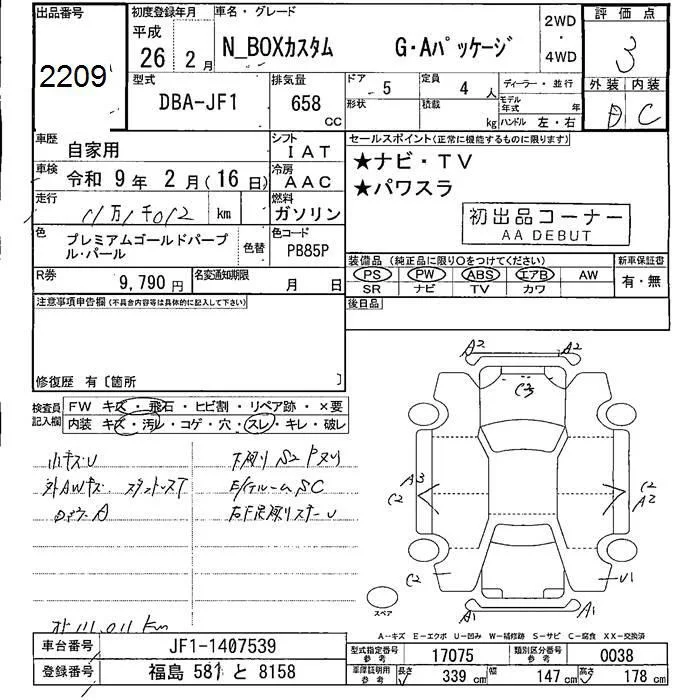 出品番号
2209
初度登録年月
平成
26 2月
車名・グレード
N_BOXカスタム G・Aパッケージ
2WD
・
4WD
評価点
3
外装 内装
D C
型式
DBA-JF1
排気量
658
CC
ドア 5
形状
定員 4 人
積載 kg
ディーラー・並行
モデル年式 年
ハンドル 左・右
車歴 自家用
シフト IAT
車検 令和 9年 2月(16日)
冷房 AAC
走行 km
燃料 ガソリン
色 プレミアムゴールドパープル・パール
色替
色コード PB85P
R券 9,790円
名変通知期限 月 日
セールスポイント(正常に機能するものに限ります)
★ナビ・TV
★パワスラ
初出品コーナー
AA DEBUT
装備品(純正品に限り○をつけてください)
PS PW ABS エアB AW
SR ナビ TV カワ
新車保証書
有・無
後日品
注意事項申告欄(不具合内容等は具体的に記入して下さい)
修復歴 有〔箇所 〕
検査員記入欄
FW キズ・飛石・ヒビ割・リペア跡・×要
内装 キズ・汚レ・コゲ・穴・スレ・キレ・破レ
小キズU
下廻りS2
外AWキズ
111,011km
A2 A2
C3
A3
C2
C2
A2
C2
U1
A1 A1
スペア
A-キズ E-エクボ U-凹み W-補修跡 S-サビ C-腐食 XX-交換済
車台番号 JF1-1407539
登録番号 福島 581 と 8158
型式指定番号 参考 17075
類別区分番号 参考 0038
車庫証明用 参考
長さ 339 cm 幅 147 cm 高さ 178 cm